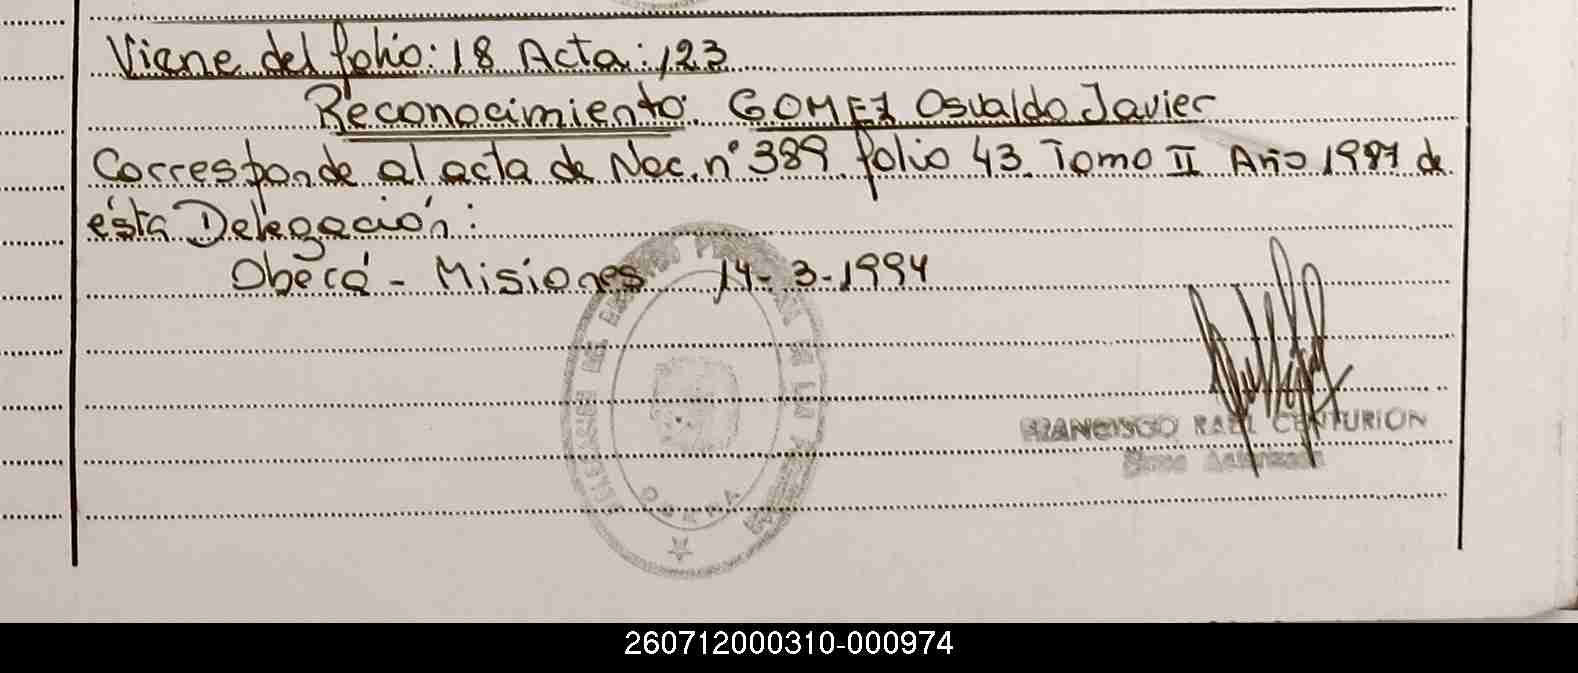 Viene del folio: 18 Acta: 123
Reconocimiento: GOMEZ Osvaldo Javier
Corresponde al acta de Nac. n° 389 folio 43. Tomo II Año 1987 de
ésta Delegación:
Oberá - Misiones 14-3-1994
FRANCISCO RAUL CENTURION
OBERA
260712000310-000974